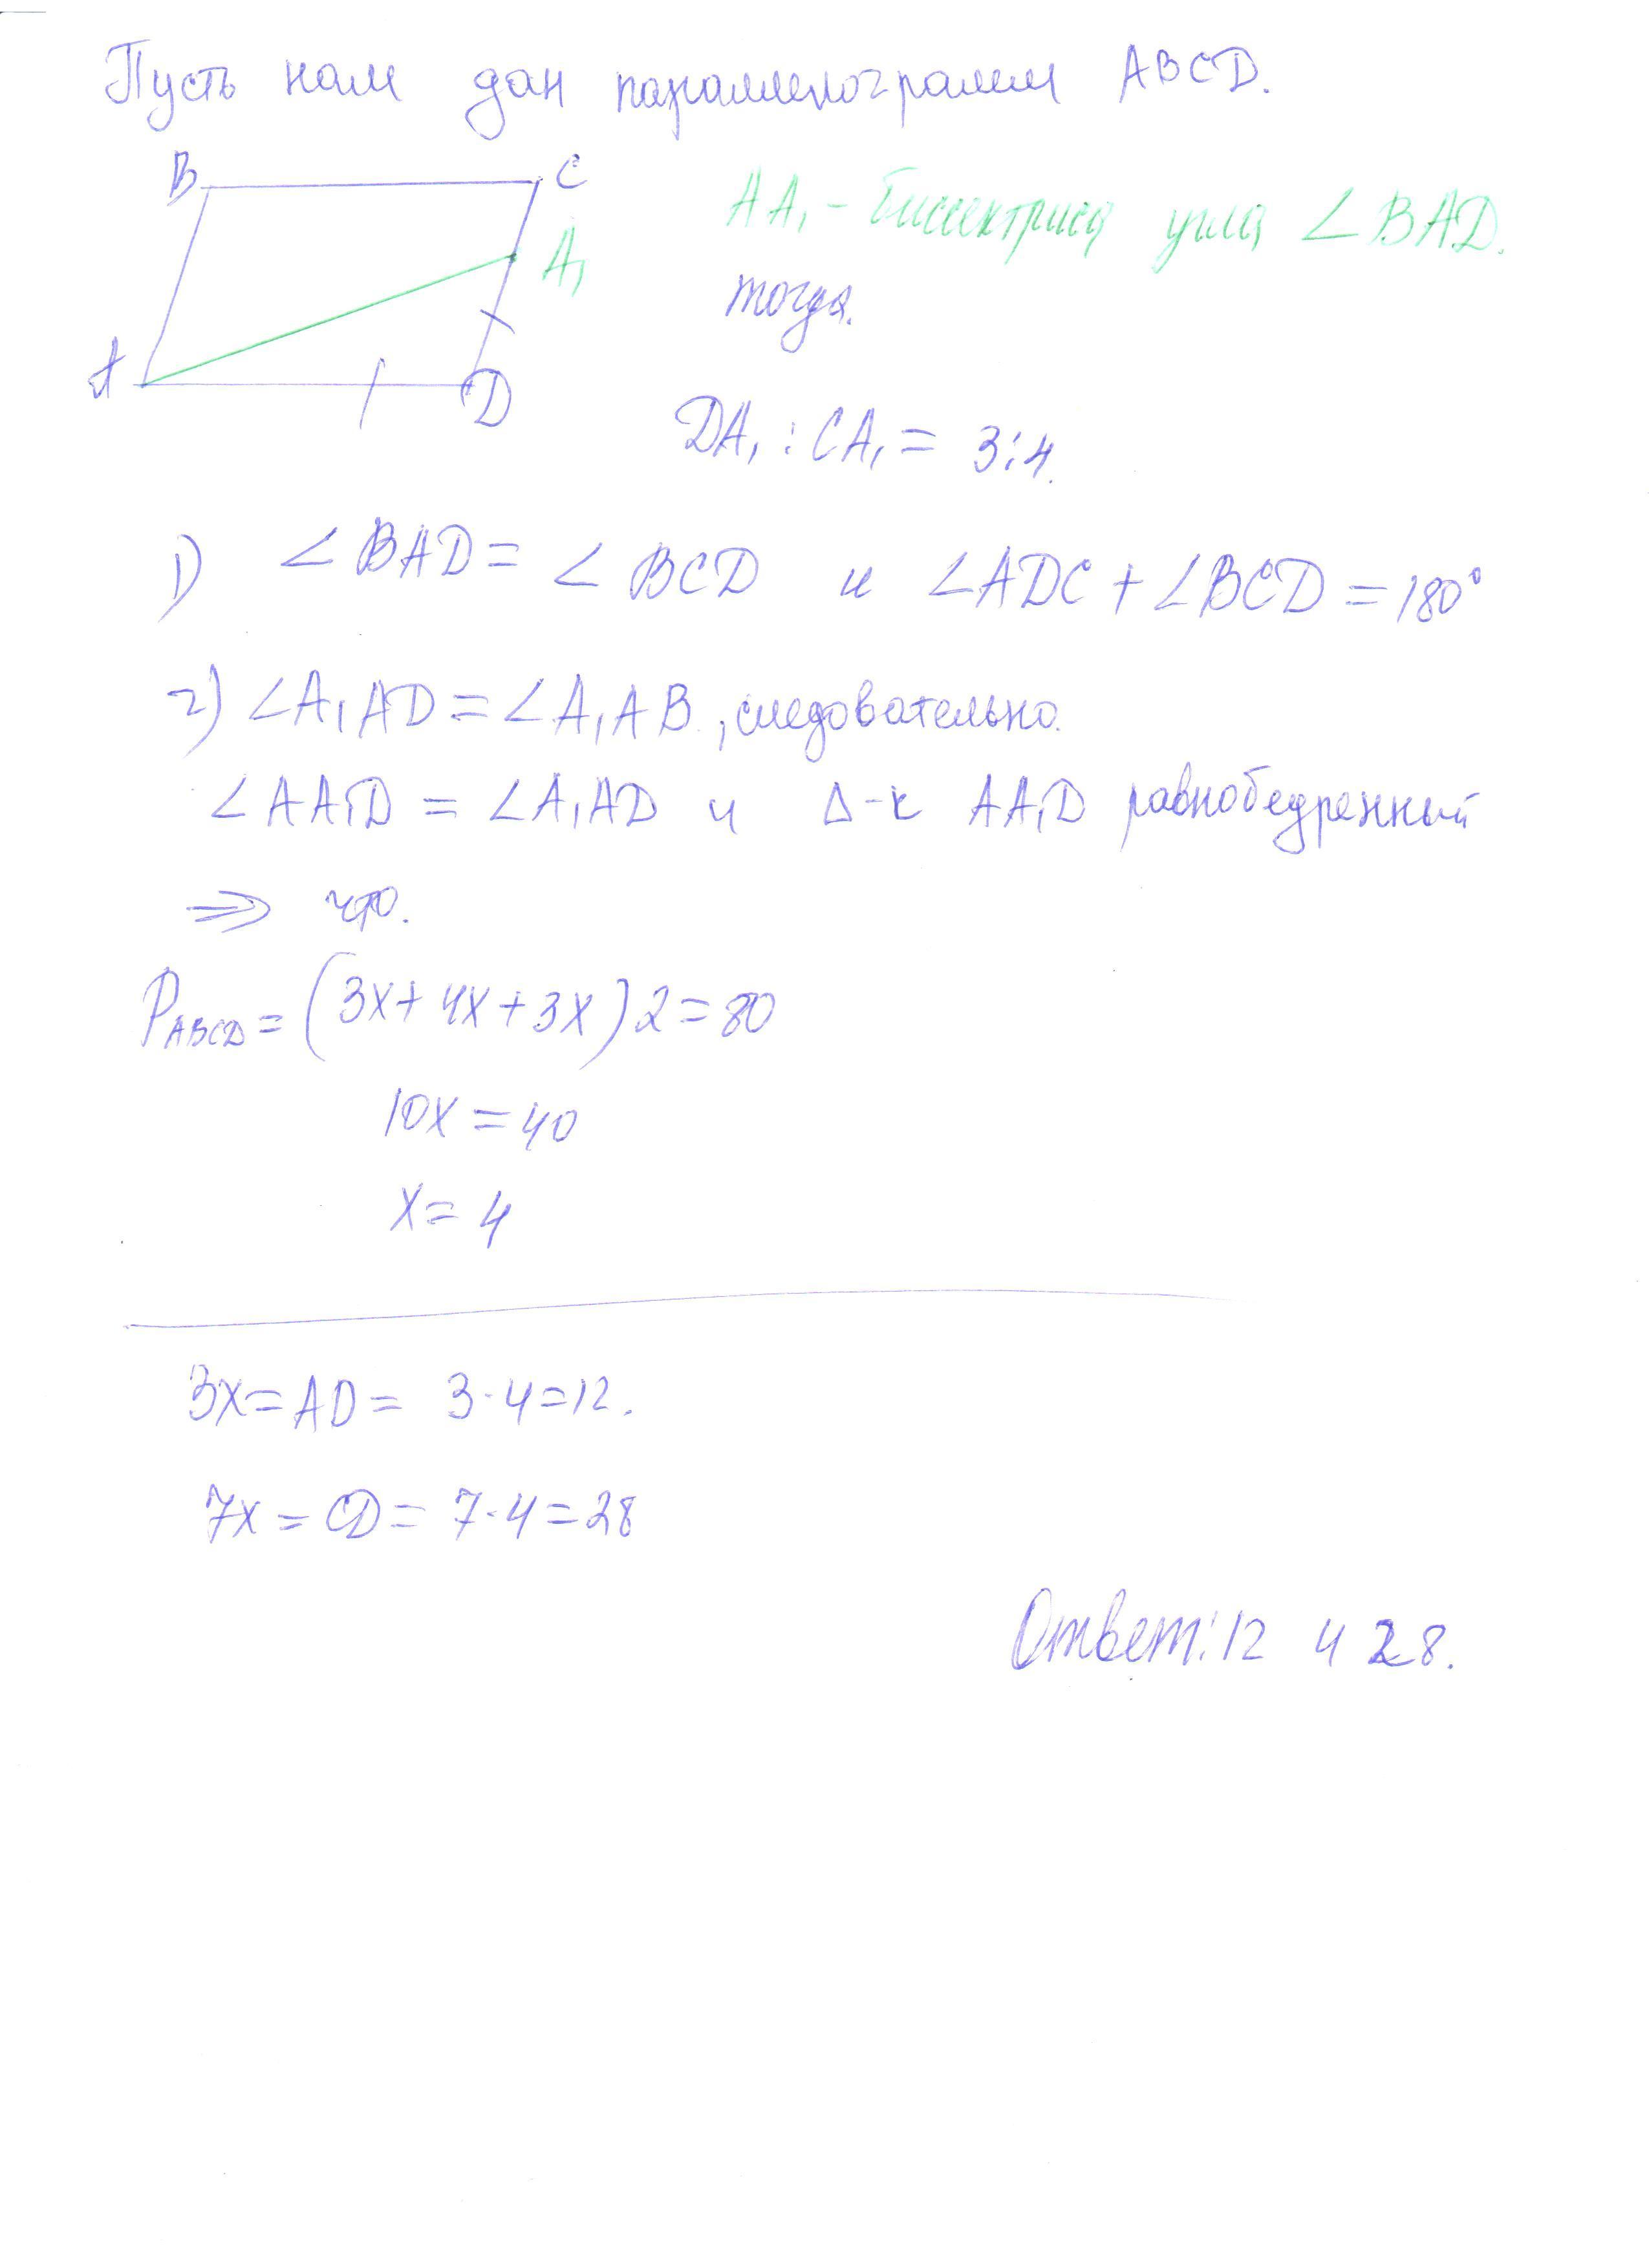 Пусть нам дан параллелограмм ABCD.
B C
AA₁ - биссектриса угла ∠BAD.
A₁
тогда.
A D
DA₁ : CA₁ = 3:4.
1) ∠BAD = ∠BCD и ∠ADC + ∠BCD = 180°
2) ∠A₁AD = ∠A₁AB, следовательно.
∠AA₁D = ∠A₁AD и Δ-к AA₁D равнобедренный
⇒ что.
P_ABCD = (3x + 4x + 3x) 2 = 80
10x = 40
x = 4
3x = AD = 3·4 = 12.
7x = CD = 7·4 = 28
Ответ: 12 и 28.